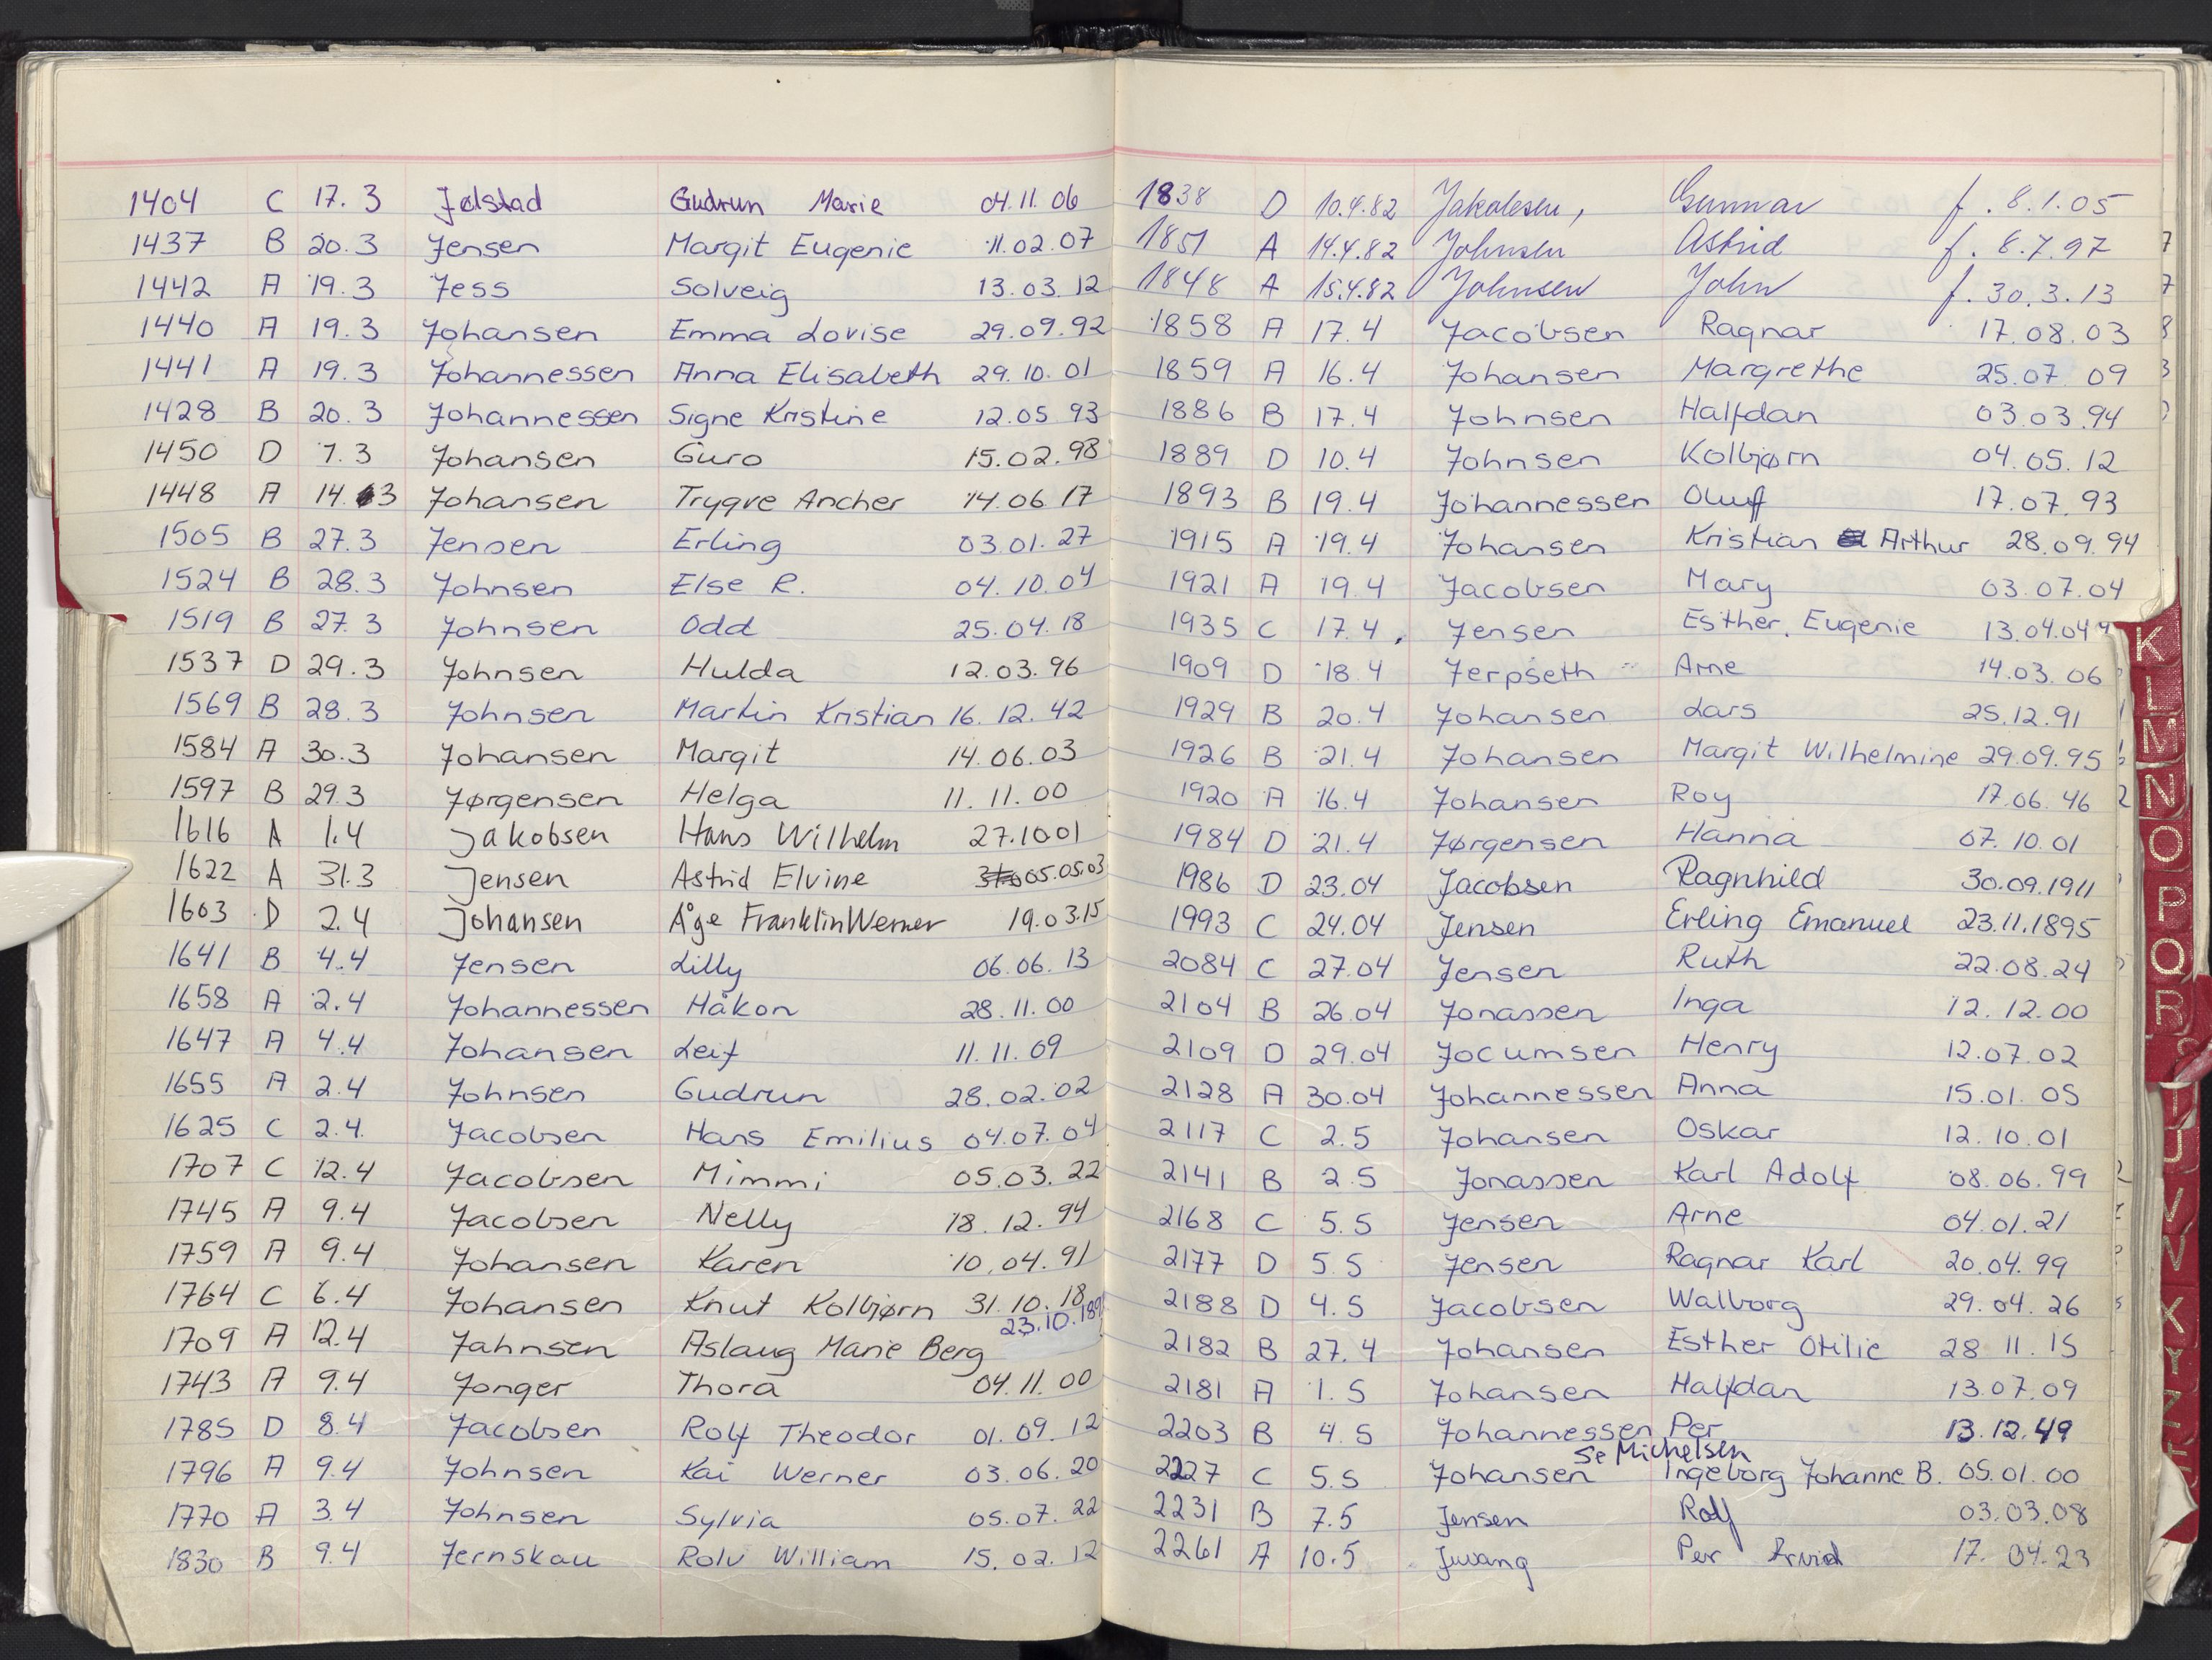 1404 C 17.3 Jølstad Gudrun Marie 04.11.06
1437 B 20.3 Jensen Margit Eugenie 11.02.07
1442 A 19.3 Jess Solveig 13.03.12
1440 A 19.3 Johansen Emma Lovise 29.09.92
1441 A 19.3 Johannessen Anna Elisabeth 29.10.01
1428 B 20.3 Johannessen Signe Kristine 12.05 93
1450 D 7.3 Johansen Guro 15.02.98
1448 A 14.3 Johansen Trygve Ancher 14.06 17
1505 B 27.3 Jensen Erling 03.01.27
1524 B 28.3 Johnsen Else R. 04.10.04
1519 B 27.3 Johnsen Odd 25.04.18
1537 D 29.3 Johnsen Hulda 12.03.96
1569 B 28.3 Johnsen Martin Kristian 16.12.42
1584 A 30.3 Johansen Margit 14.06.03
1597 B 29.3 Jørgensen Helga 11.11.00
1616 A 1.4 Jakobsen Hans Wilhelm 27.10 01
1622 A 31.3 Jensen Astrid Elvine 05.05.03
1603 D 2.4 Johansen Åge Franklin Werner 19.03.15
1641 B 4.4 Jensen Lilly 06.06.13
1658 A 2.4 Johannessen Håkon 28.11.00
1647 A 4.4 Johansen Leif 11.11.09
1655 A 2.4 Johnsen Gudrun 28.02.02
1625 C 2.4. Jacobsen Hans Emilius 04.07.04
1707 C 12.4 Jacobsen Mimmi 05.03.22
1745 A 9.4 Jacobsen Nelly 18.12.94
1759 A 9.4 Johansen Karen 10.04.91
1764 C 6.4 Johansen Knut Kolbjørn 31.10.18
23.10.189
1709 A 12.4 Jahnsen Aslaug Marie Berg
1743 A 9.4 Jonger Thora 04.11.00
1785 D 8.4 Jacobsen Rolf Theodor 01.09.12
1796 A 9.4 Johnsen Kai Werner 03.06.20
1770 A 3.4 Johnsen Sylvia 05.07.22
1830 B 9.4 Jernskau Rolv William 15.02.12
1838 D 10.4.82 Jakobsen, Gunnar f. 8.1.05
1851 A 14.4.82 Johnsen Astrid f. 8.7.97
1848 A 15.4.82 Johnsen John f. 30.3.13
1858 A 17.4 Jacobsen Ragnar 17.08.03
1859 A 16.4 Johansen Margrethe 25.07 09
1886 B 17.4 Johnsen Halfdan 03.03.94
1889 D 10.4 Johnsen Kolbjørn 04.05.12
1893 B 19.4 Johannessen Oluff 17.07.93
1915 A 19.4 Johansen Kristian Arthur 28.09.94
1921 A 19.4 Jacobsen Mary 03.07.04
1935 C 17.4. Jensen Esther Eugenie 13.04.04
1909 D 18.4 Jerpseth Arne 14.03.06
1929 B 20.4 Johansen Lars 25.12.91
1926 B 21.4 Johansen Margit Wilhelmine 29.09.95
1920 A 16.4 Johansen Roy 17.06.46
1984 D 21.4 Jørgensen Hanna 07.10.01
1986 D 23.04 Jacobsen Ragnhild 30.09.1911
1993 C 24.04 Jensen Erling Emanuel 23.11.1895
2084 C 27.04 Jensen Ruth 22.08.24
2104 B 26.04 Jonassen Inga 12.12.00
2109 D 29.04 Jocumsen Henry 12.07.02
2128 A 30.04 Johannessen Anna 15.01.05
2117 C 2.5 Johansen Oskar 12.10.01
2141 B 2.5 Jonassen Karl Adolf 08.06.99
2168 C 5.5 Jensen Arne 04.01.21
2177 D 5.5 Jensen Ragnar Karl 20.04.99
2188 D 4.5 Jacobsen Walborg 29.04.26
2182 B 27.4 Johansen Esther Otilie 28 11.15
2181 A 1.5 Johansen Halfdan 13.07.09
2203 B 4.5 Johannessen Per 13.12.49
Se Michelsen
2227 C 5.5 Johansen Ingeborg Johanne B. 05.01.00
2231 B 7.5 Jensen Rolf 03.03.08
2261 A 10.5 Juvang Per Arvid 17.04.23
K
L
M
N
O
P
Q
R